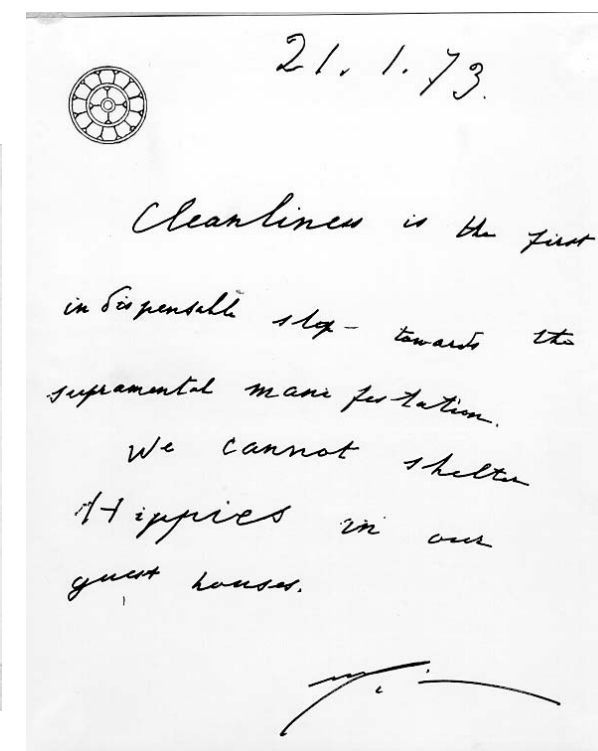 21.1.73.
Cleanliness is the first
indispensable step towards the
supramental manifestation.
We cannot shelter
Hippies in our
guest houses.